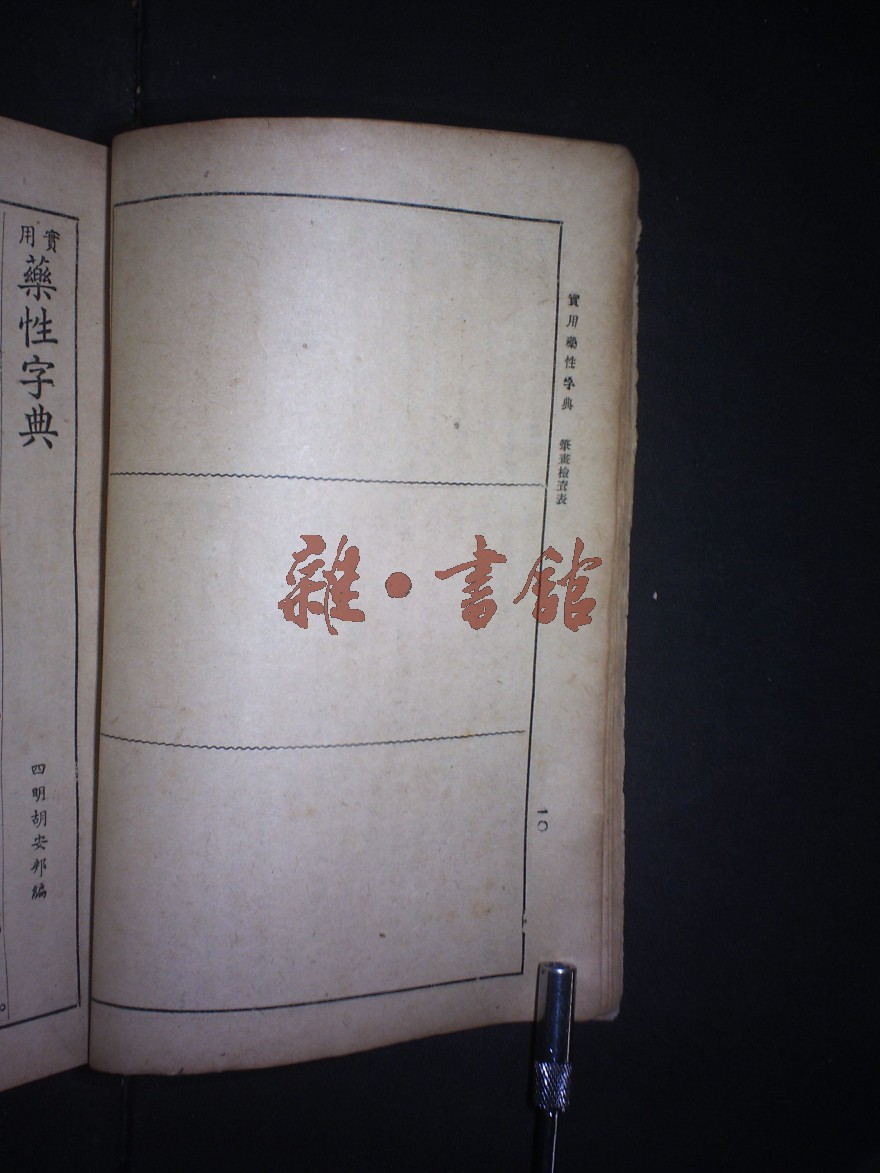 實用藥性字典　筆畫檢查表
一〇
雜・書館
實用
藥性字典
四明胡安邦編